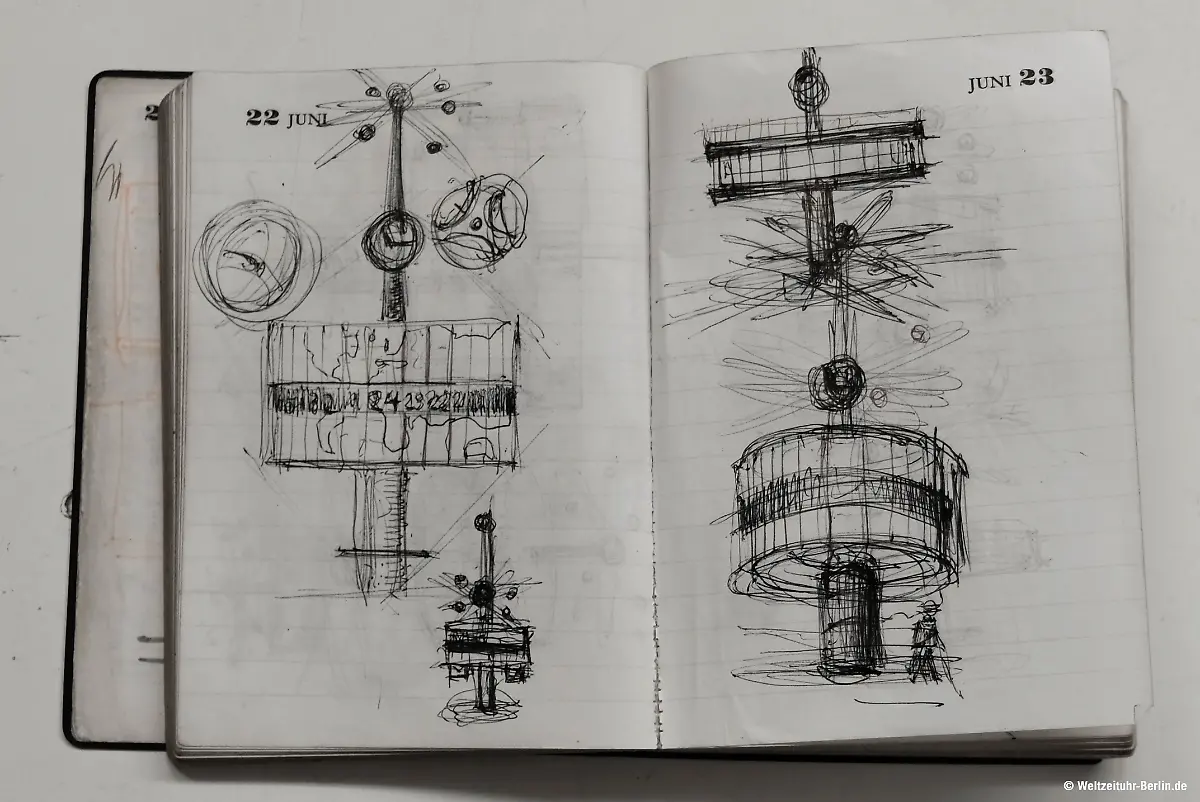 2
22 JUNI
JUNI 23
24
© Weltzeituhr-Berlin.de